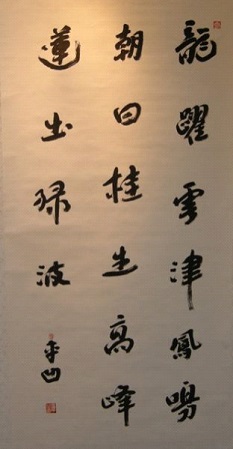 龍躍雲津鳳鳴
朝日桂生高峰
蓮出綠波
平凹